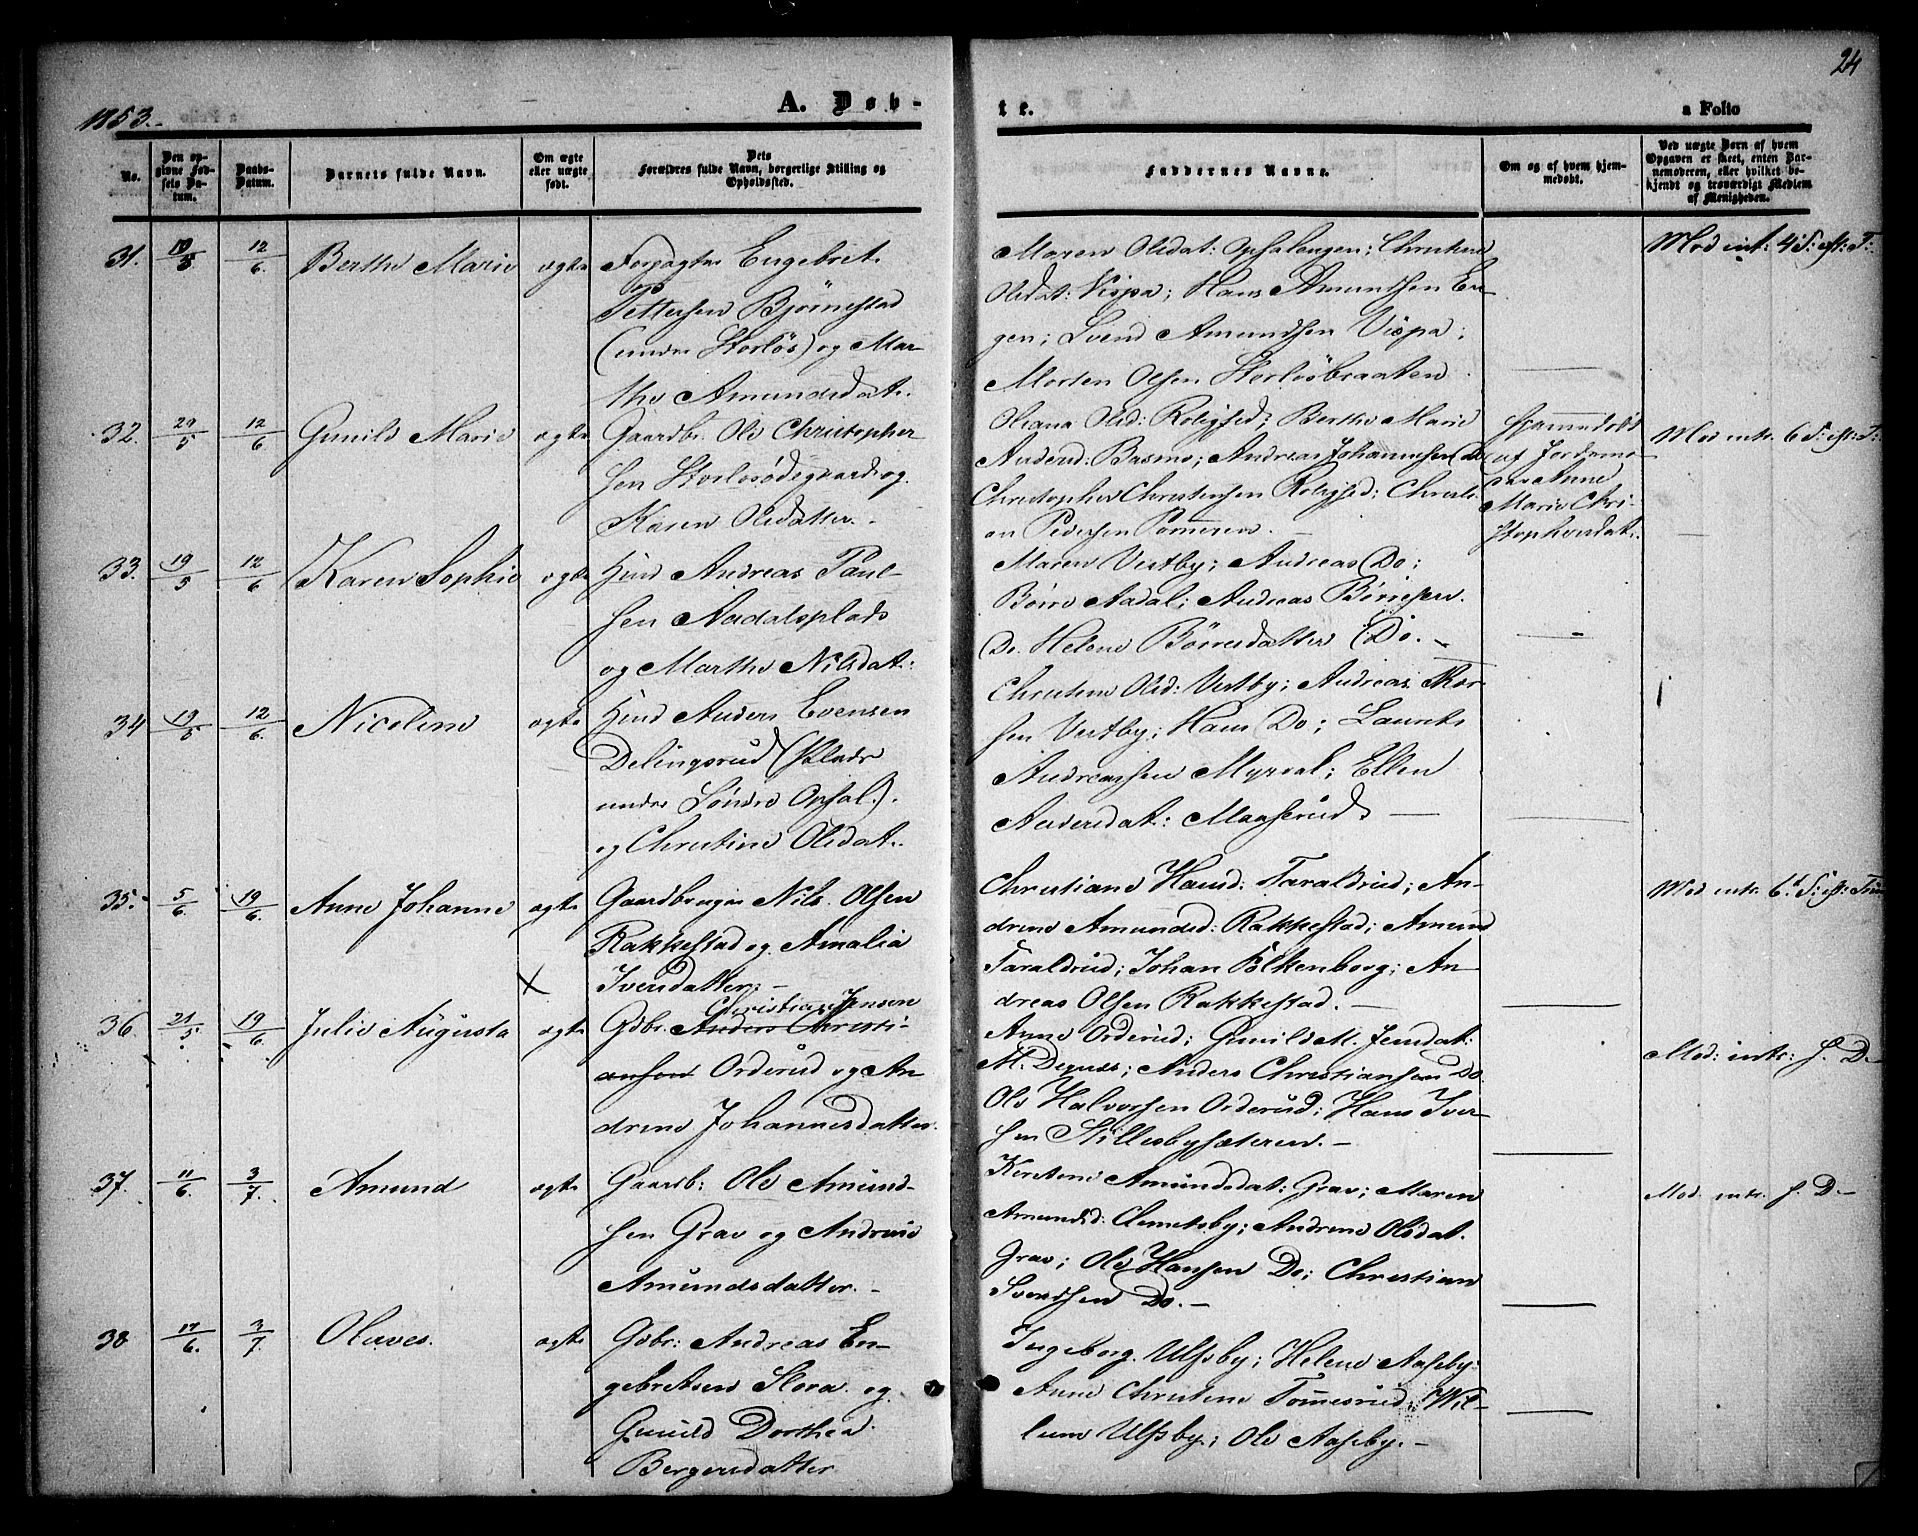 24
1853.
A. Døb-
te.
a Folio
No.
Den op-
givne Fød-
sels Da-
tum.
Daabs-
Datum.
Barnets fulde Navn.
Om ægte
eller uægte
født.
Dets
Forældres fulde Navn, borgerlige Stilling og
Opholdssted.
Faddernes Navne.
Om og af hvem hjem-
medøbt.
Ved uægte Børn af hvem
Opgaven er skeet, enten Bar-
nemoderen, eller hvilket be-
kjendt og troværdigt Medlem
af Menigheden.
31. 19/5 12/6. Berthe Marie ægte
Forpagter Engebret
Pettersen Bjørnestad
(under Storløs) og Mar-
the Amundsdat.
Maren Olsdat: Opsalengen; Christine
Olsdat: Vispa; Hans Amundsen En-
gen; Svend Amundsen Vispa;
Morten Olsen Storløsbraaten
Mod int: 4 S: eft: T:
32. 29/5 12/6 Gunild Marie ægte
Gaardbr. Ole Christopher-
sen Storløsødegaard og
Karen Olsdatter.
Oliana Olsd: Rolighed; Berthe Marie
Andersd: Basmo; Andreas Johannesen Do
Christopher Christensen Rolighed; Christi-
an Pedersen Pommeren.
Hjemmedøbt
af Jordemo-
der Anne
Marie Chri-
stophersdat.
Mod intr. 6 S: eft: T:
33. 19/5 12/6 Karen Sophie ægte
Huusmd Andreas Paul-
sen Aadalsplads
og Marthe Nilsdat:
Maren Vestby; Andreas Do;
Børre Aadal; Andreas Børresen
Do. Helene Børresdatter Do.
34 19/5 12/6. Nicoline ægte
Huusmd Anders Evensen
Delingsrud (Plads
under Søndre Opsal).
og Christine Olsdat.
Christine Olsd: Vestby; Andreas Thor-
sen Vestby; Hans Do; Laurits
Andreassen Myrval; Ellen
Andersdat: Maaserud
35. 5/6. 19/6. Anne Johanne ægte
Gaardbruger Nils Olsen
Rakkestad og Amalia
Iversdatter.
Christiane Hansd: Taraldrud; An-
drine Amundsd: Rakkestad; Amund
Taraldrud; Johan Falkenborg; An-
dreas Olsen Rakkestad.
Mod intr. 6t S: eft: Trin
36. 21/5 19/6. Julie Augusta ægte
Christian Jensen
Gdbr. Anders Christi-
ansen Orderud og An-
drine Johannesdatter.
Anne Orderud; Gunild M. Jensdat:
M. Deguss; Anders Christiansen Do
Ole Halvorsen Orderud; Hans Iver-
sen Stillesbysæteren.
Mod: intr: s. D.
37. 11/6. 3/7. Amund ægte
Gaardb: Ole Amund-
sen Grav og Andrine
Amundsdatter.
Kirstine Amundsdat: Grav; Maren
Amundsd: Clemetsby; Andrine Olsdat.
Grav; Ole Hansen Do; Christian
Svendsen Do.
Mod. intr. s. D.
38 17/6. 3/7. Oluves. ægte
Gdbr: Andreas En-
gebretsen Slora og
Gunild Dorthea
Bergersdatter
Ingeborg Ulfsby; Helene Aaseby;
Anne Christine Tommesrud; Wil-
lum Ulfsby; Ole Aaseby.